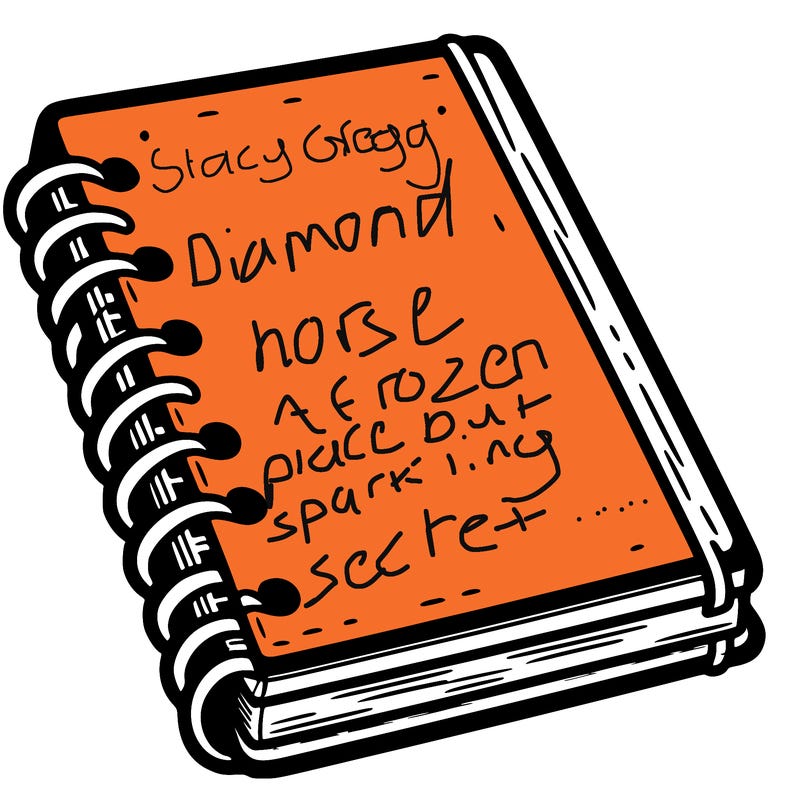 Stacy Gregg
Diamond
horse
A frozen
place but
sparkling
secret ......